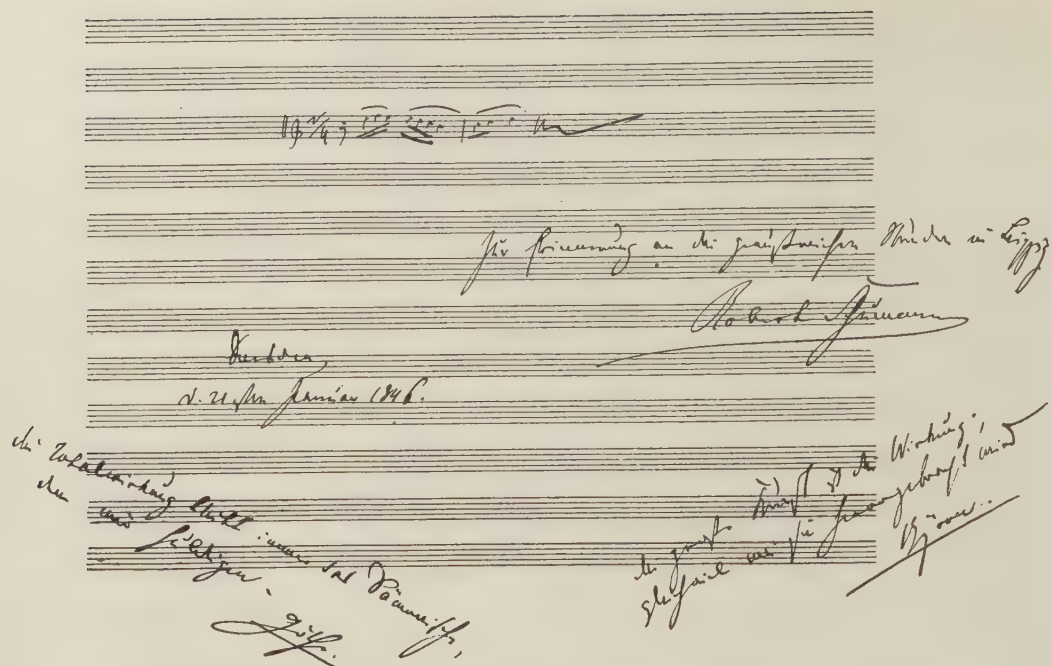 Zur Erinnerung an die genußreichen Stunden in Leipzig
Robert Schumann
Dresden,
d. 21sten Januar 1846.
die Totalwirkung bleibt immer das Dämonische,
dem wir huldigen.
Göthe.
die ganze Kunst ist der Wirkung,
gleichviel wie sie hervorgebracht wird
Byron.